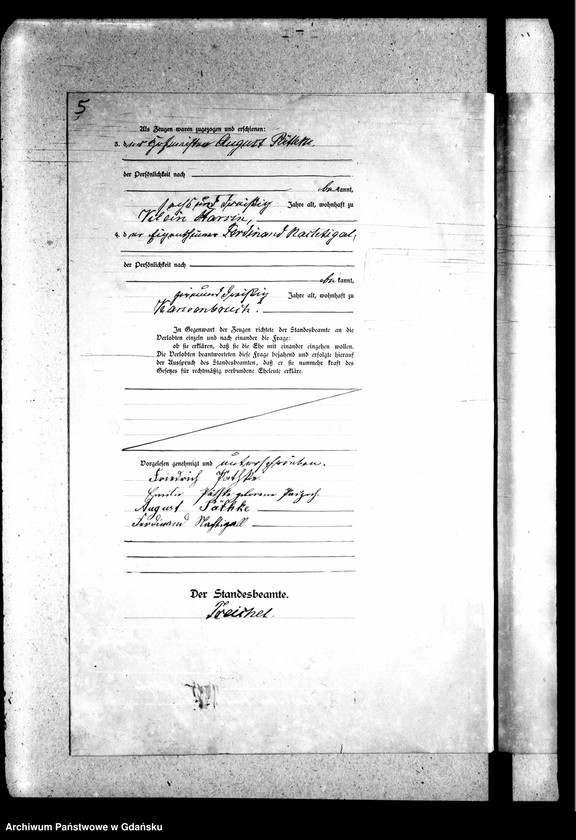 5
Als Zeugen waren zugezogen und erschienen:
3. der Hofmeister August Päthke
der Persönlichkeit nach
bekannt,
sechs und dreißig Jahre alt, wohnhaft zu
Klein
4. der Eigenthümer Ferdinand Nachtigal,
der Persönlichkeit nach
bekannt,
dreißig Jahre alt, wohnhaft zu
In Gegenwart der Zeugen richtete der Standesbeamte an die
Verlobten einzeln und nach einander die Frage:
ob sie erklären, daß sie die Ehe mit einander eingehen wollen.
Die Verlobten beantworteten diese Frage bejahend und erfolgte hierauf
der Ausspruch des Standesbeamten, daß er sie nunmehr kraft des
Gesetzes für rechtmäßig verbundene Eheleute erkläre.
Vorgelesen genehmigt und unterschrieben.
Friedrich Päthke
Emilie Päthke geborene
August Päthke
Ferdinand Nachtigall
Der Standesbeamte.
Treichel.
Archiwum Państwowe w Gdańsku